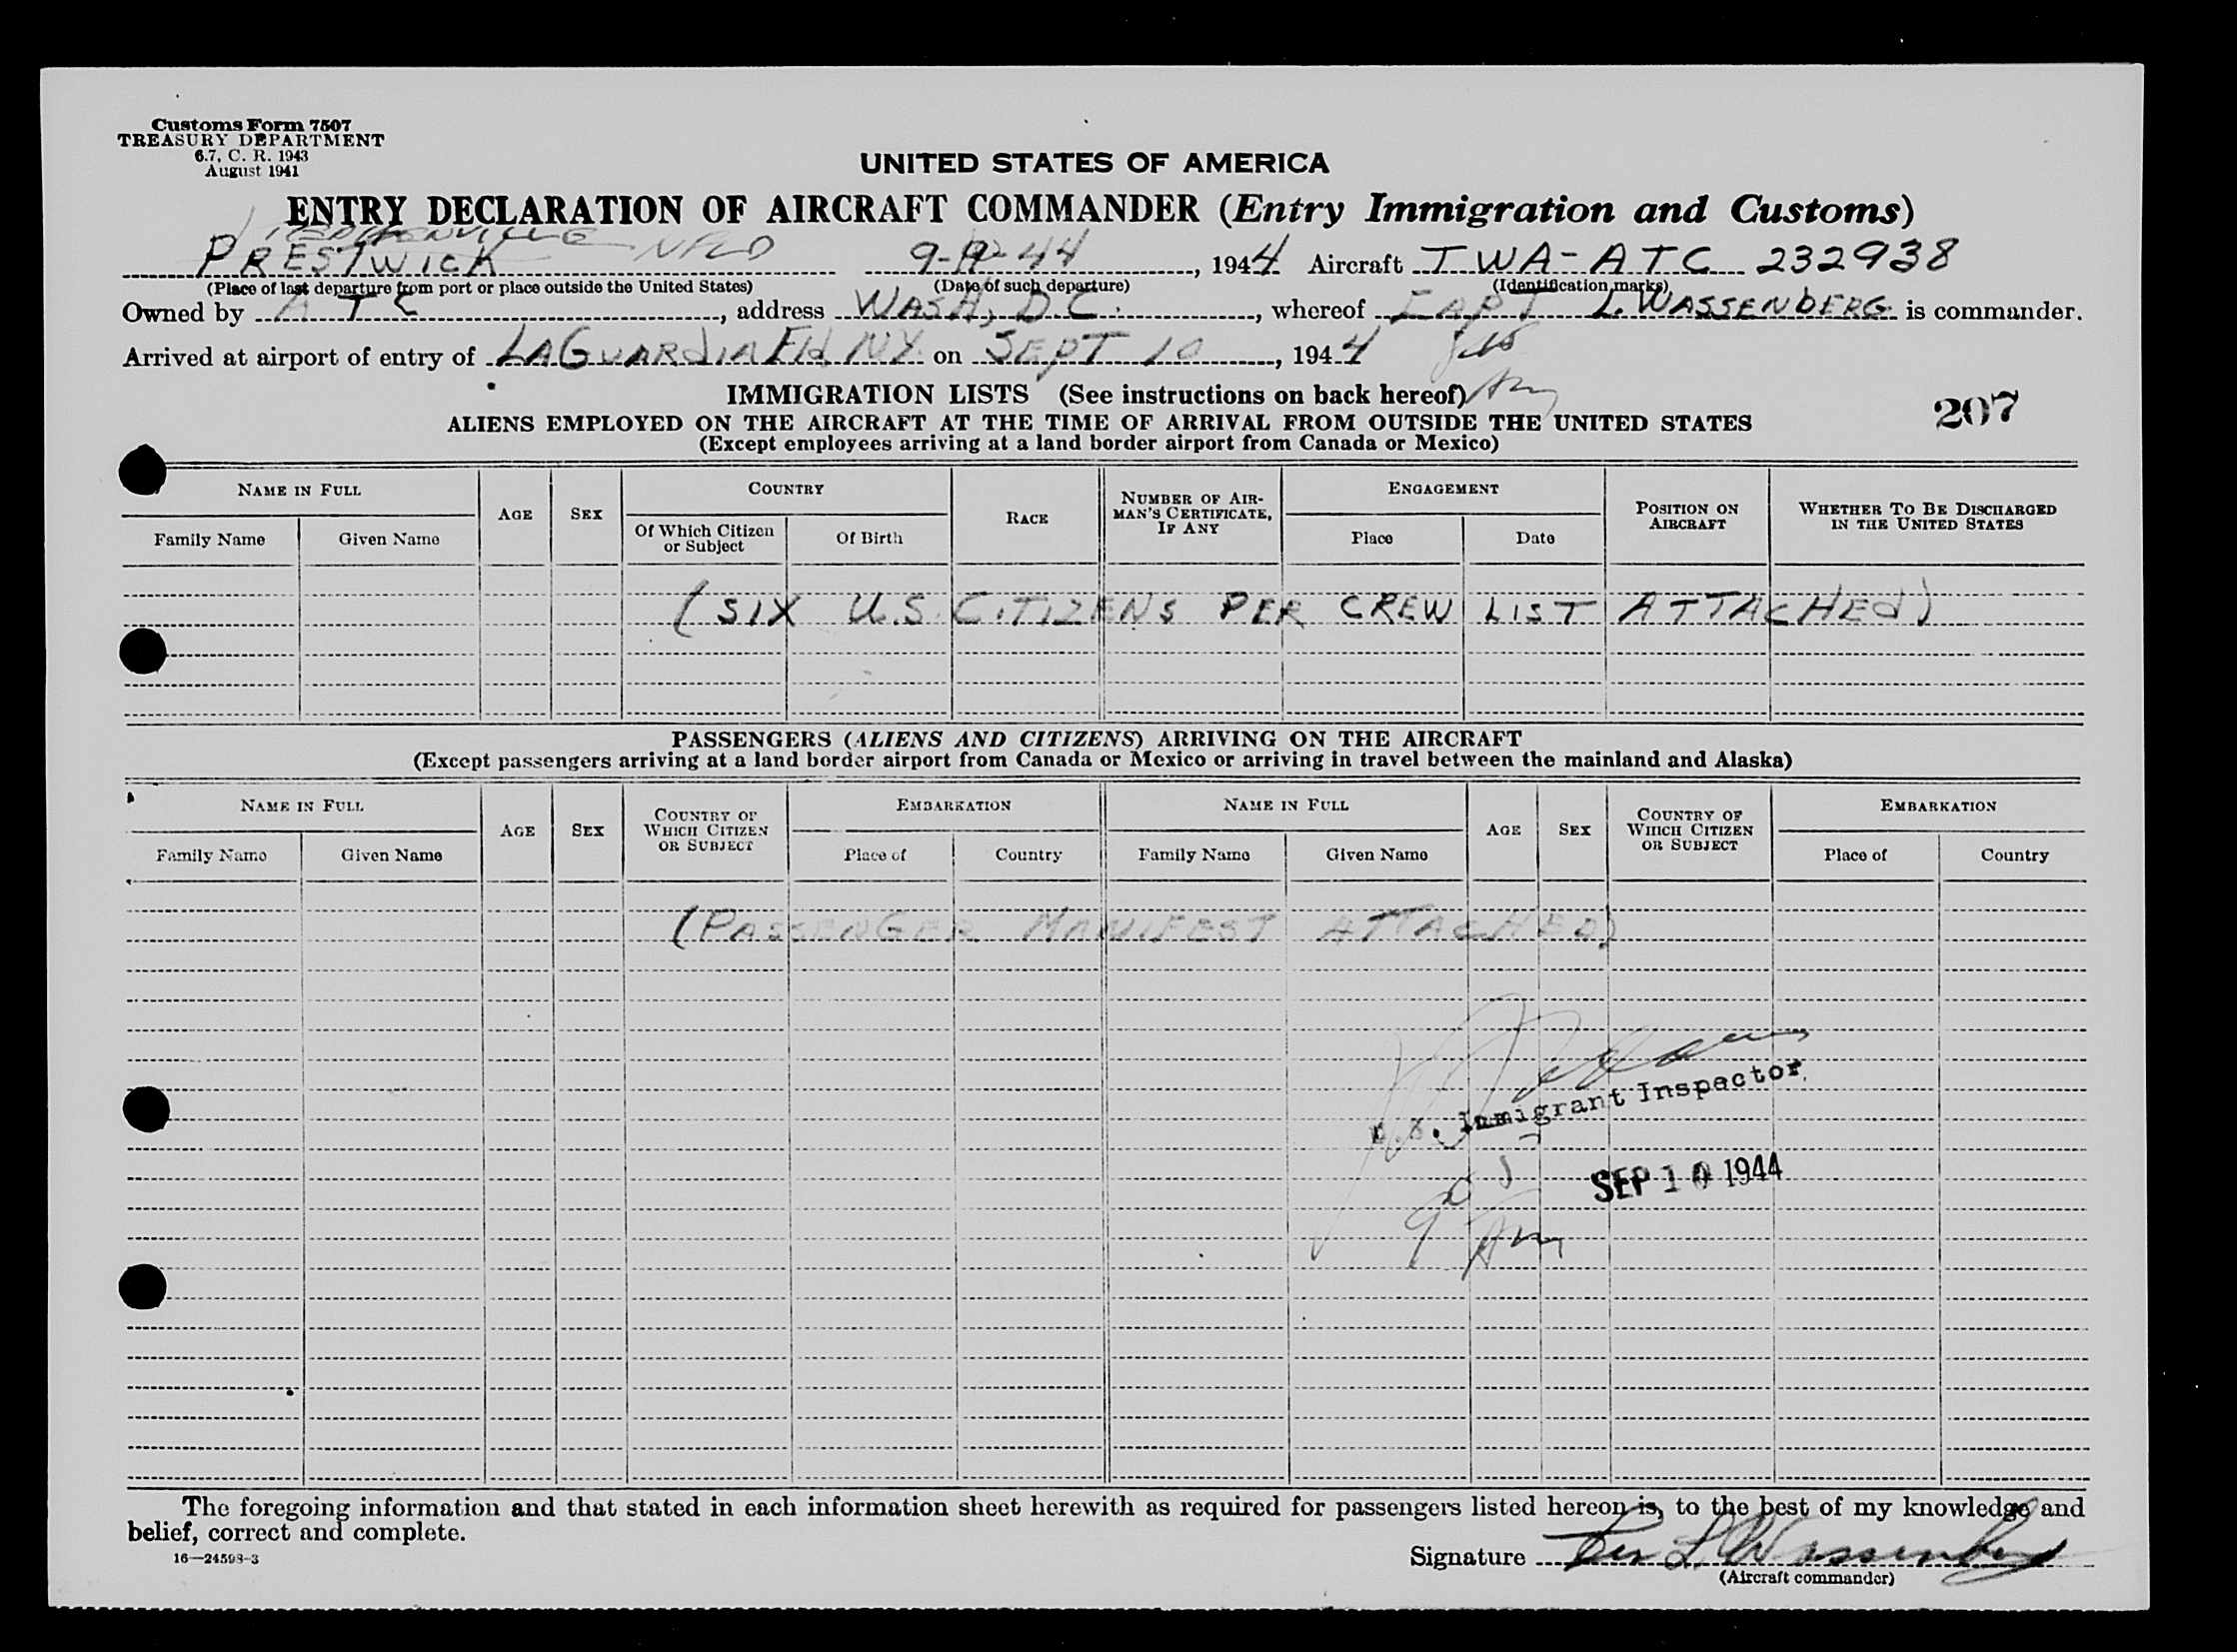 Customs Form 7507
TREASURY DEPARTMENT
6.7, C. R. 1943
August 1941
UNITED STATES OF AMERICA
ENTRY DECLARATION OF AIRCRAFT COMMANDER (Entry Immigration and Customs)
NFLD
PRESTWICK 9- -44, 1944 Aircraft TWA-ATC 232938
(Place of last departure from port or place outside the United States) (Date of such departure) (Identification marks)
Owned by ATC, address WASH, D.C., whereof CAPT L. WASSENBERG is commander.
Arrived at airport of entry of LAGUARDIA Fld NY on SEPT 10, 1944
IMMIGRATION LISTS (See instructions on back hereof) Am
ALIENS EMPLOYED ON THE AIRCRAFT AT THE TIME OF ARRIVAL FROM OUTSIDE THE UNITED STATES 207
(Except employees arriving at a land border airport from Canada or Mexico)
NAME IN FULL AGE SEX COUNTRY RACE NUMBER OF AIRMAN'S CERTIFICATE, IF ANY ENGAGEMENT POSITION ON AIRCRAFT WHETHER TO BE DISCHARGED IN THE UNITED STATES
Family Name Given Name Of Which Citizen or Subject Of Birth Place Date
(SIX U.S. CITIZENS PER CREW LIST ATTACHED)
PASSENGERS (ALIENS AND CITIZENS) ARRIVING ON THE AIRCRAFT
(Except passengers arriving at a land border airport from Canada or Mexico or arriving in travel between the mainland and Alaska)
NAME IN FULL AGE SEX COUNTRY OF WHICH CITIZEN OR SUBJECT EMBARKATION NAME IN FULL AGE SEX COUNTRY OF WHICH CITIZEN OR SUBJECT EMBARKATION
Family Name Given Name Place of Country Family Name Given Name Place of Country
(PASSENGER MANIFEST ATTACHED)
Immigrant Inspector
SEP 10 1944
Am
The foregoing information and that stated in each information sheet herewith as required for passengers listed hereon is, to the best of my knowledge and
belief, correct and complete.
16—24598-3
Signature L Wassenberg
(Aircraft commander)